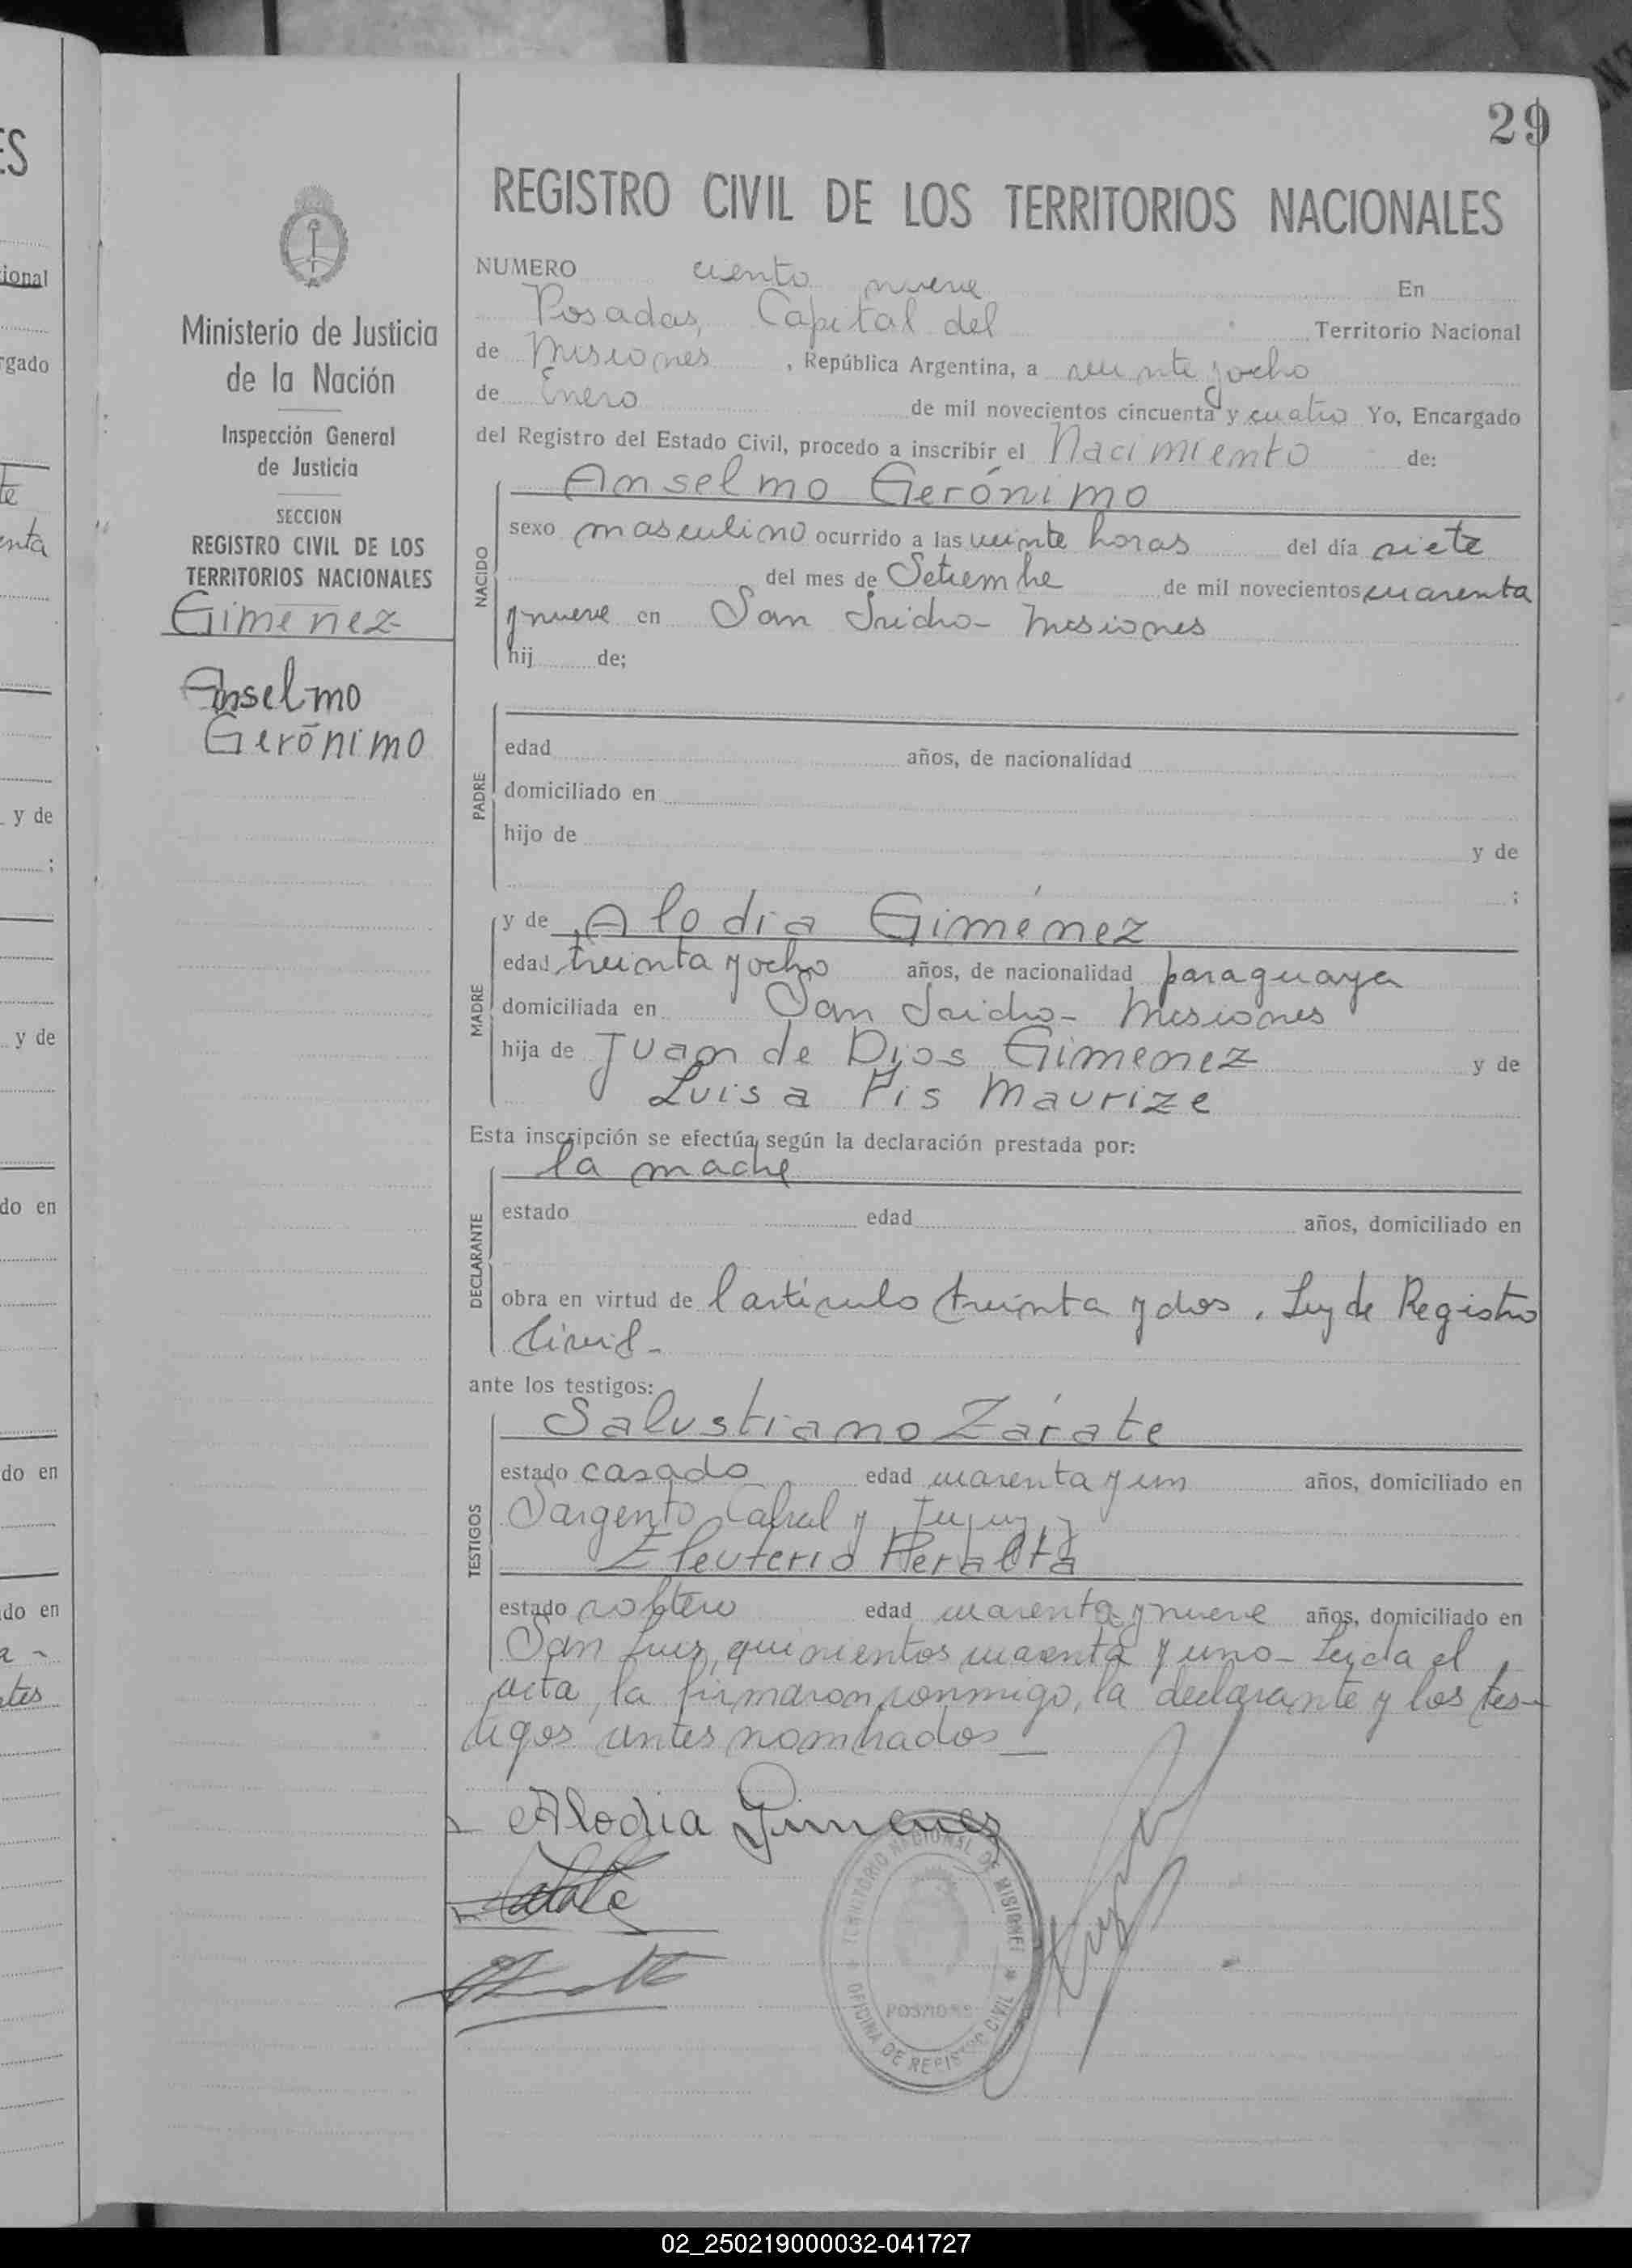 29
REGISTRO CIVIL DE LOS TERRITORIOS NACIONALES
Ministerio de Justicia
de la Nación
Inspección General
de Justicia
SECCION
REGISTRO CIVIL DE LOS
TERRITORIOS NACIONALES
Gimenez
Anselmo
Gerónimo
NUMERO ciento nueve En
Posadas, Capital del Territorio Nacional
de Misiones, República Argentina, a veinte y ocho
de Enero de mil novecientos cincuenta y cuatro Yo, Encargado
del Registro del Estado Civil, procedo a inscribir el Nacimiento de:
Anselmo Gerónimo
NACIDO
sexo masculino ocurrido a las veinte horas del día siete
del mes de Setiembre de mil novecientos cuarenta
y nueve en San Isidro - Misiones
hij de;
PADRE
edad años, de nacionalidad
domiciliado en
hijo de y de
;
MADRE
y de Alodia Giménez
edad treinta y ocho años, de nacionalidad paraguaya
domiciliada en San Isidro - Misiones
hija de Juan de Dios Gimenez y de
Luisa Pis Maurize
Esta inscripción se efectúa según la declaración prestada por:
la madre
DECLARANTE
estado edad años, domiciliado en
obra en virtud de l artículo treinta y dos, Ley de Registro
Civil -
ante los testigos:
Salustiano Zárate
TESTIGOS
estado casado edad cuarenta y un años, domiciliado en
Sargento Cabral y Jujuy, y
Eleuterio Peralta
estado soltero edad cuarenta y nueve años, domiciliado en
San Luis, quinientos cuarenta y uno - Leida el
acta, la firmaron conmigo, la declarante y los tes-
tigos antes nombrados
Alodia Gimenez
TERRITORIO NACIONAL DE MISIONES
POSADAS
OFICINA DE REGISTRO CIVIL
02_250219000032-041727